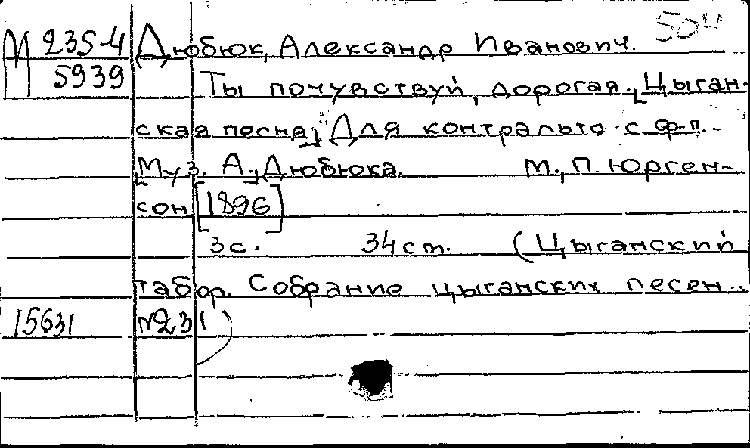 М 235-4 Дюбюк, Александр Иванович. 50 к
5939 Ты почувствуй, дорогая. [Цыган-
ская песня] Для контральто с ф-п.
[Муз. А.] Дюбюка. М., П. Юрген-
сон [1896]
3 с. 34 ст. (Цыганский
табор. Собрание цыганских песен..
15631 №231)